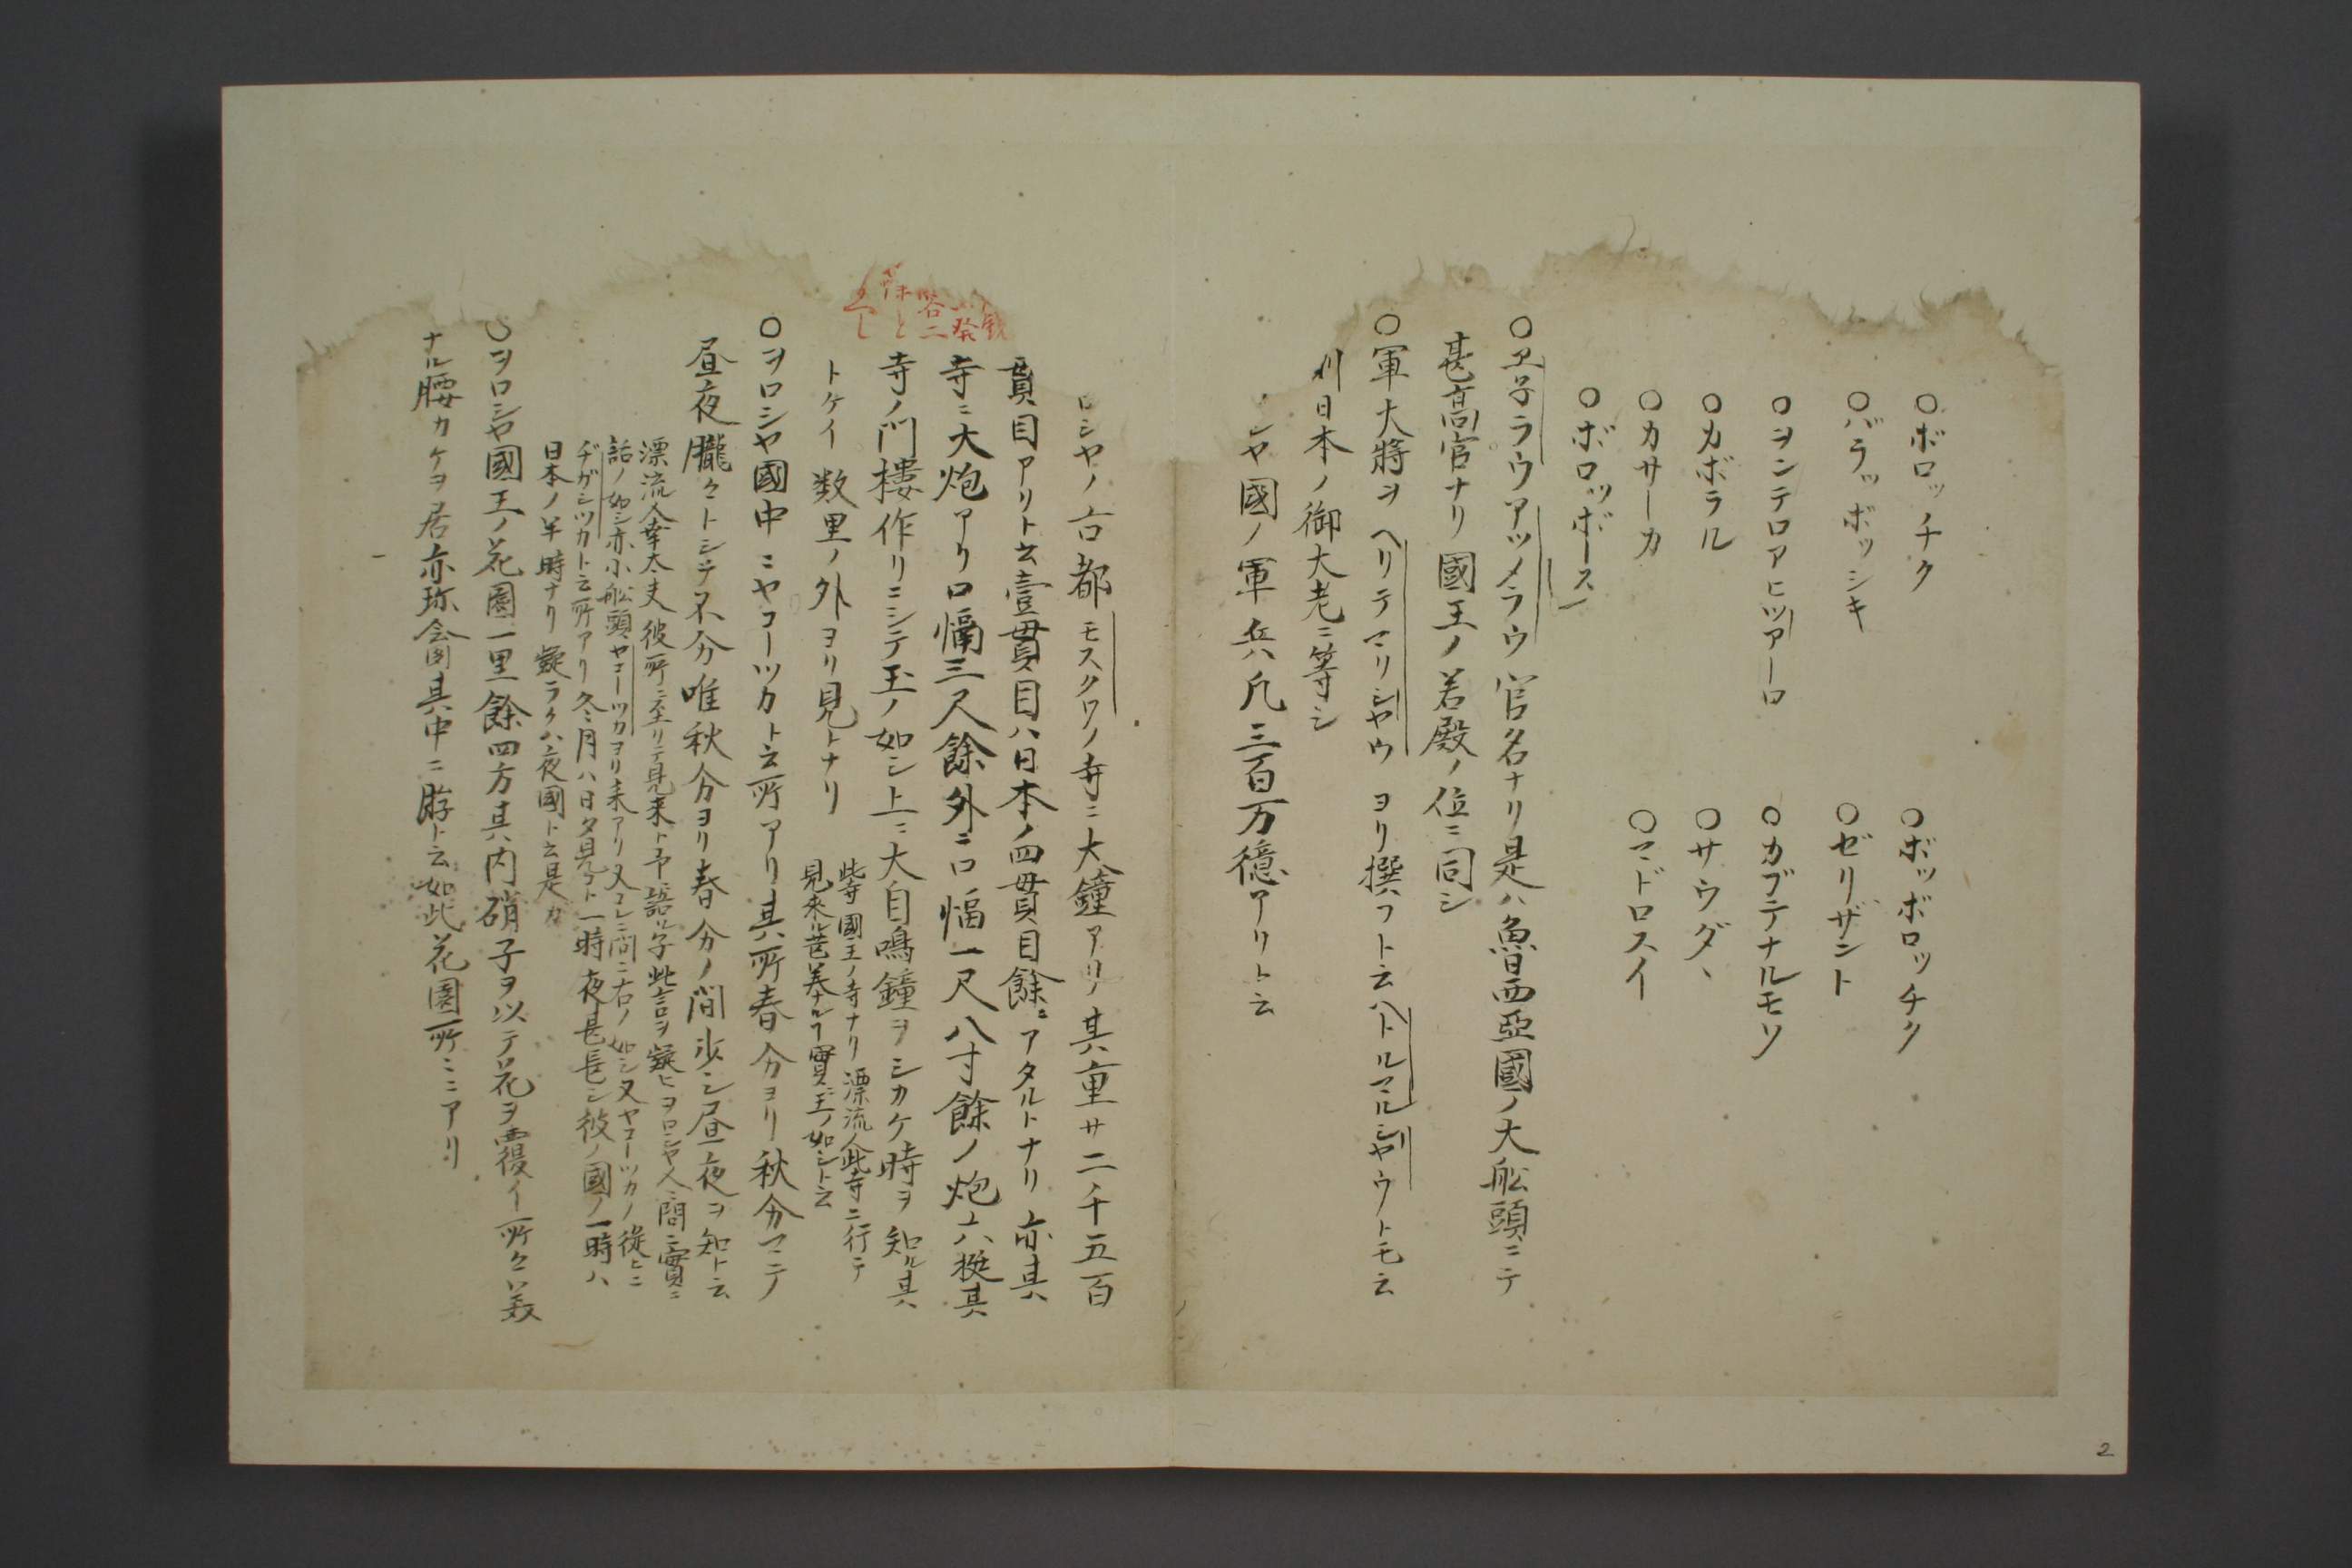 ○ボロッチク　○ボッボロッチク
○バラッボッシキ　○ゼリザント
○ヲンテロアヒツアーロ　○カブテナルモソ
○カボラル　○サウダヽ
○カサーカ　○マドロスイ
○ボロッボース
○ヱ子ラウアツメラウ官名ナリ是ハ魯西亞國ノ大舩頭ニテ
甚高官ナリ國王ノ若殿ノ位ニ同シ
○軍大將ヲヘリテマリシヤウヨリ撰フト云ハトルマルシヤウトモ云
則日本ノ御大老ニ等シ
シヤ國ノ軍兵凡三百万億アリト云
ロシヤノ古都モスクワノ寺ニ大鐘アリ其重サ二千五百
貫目アリト云壹貫目ハ日本ノ四貫目餘ニアタルトナリ亦其
寺ニ大炮アリ口幅三尺餘外ニ口幅一尺八寸餘ノ炮六挺其
寺ノ門樓作リニシテ玉ノ如シ上ニ大自鳴鐘ヲシカケ時ヲ知ル其
トケイ数里ノ外ヨリ見トナリ
此寺國王ノ寺ナリ漂流人此寺ニ行テ
見来ル荘美ナルヿ實ニ玉ノ如シト云
○ヲロシヤ國中ニヤコーツカト云所アリ其所春分ヨリ秋分マテノ
昼夜朧々トシテ不分唯秋分ヨリ春分ノ間少シ昼夜ヲ知ト云
漂流人幸太夫彼所ニ至リテ見来ト予語ル予此言ヲ疑ヒヲロシヤ人ニ問ニ實ニ
話ノ如シ亦小舩頭ヤコーツカヨリ来アリ又コレニ問ニ右ノ如シ又ヤコーツカノ從ヒニ
ヂガンツカト云所アリ冬月ハ日タ見ヿ一時夜甚長シ彼ノ國ノ一時ハ
日本ノ半時ナリ疑ラクハ夜國ト云是カ
○ヲロシヤ國王ノ花園一里餘四方其内硝子ヲ以テ花ヲ覆イ所々ハ美
ナル腰カケヲ居亦珎会圍其中ニ游ト云如此花園所ニニアリ